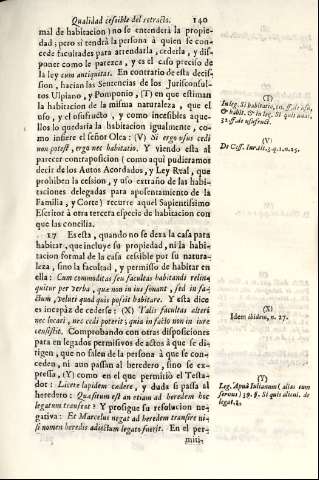 Qualidad cessible del retracto. 140
mal de habitacion) no se entenderá la propie-
dad; pero si tendrà la persona à quien se con-
cede facultades para arrendarla, cederla, y dis-
poner como le parezca, y es el caso preciso de
la ley cum antiquitas. En contrario de esta deci-
sion, hacian las Sentencias de los Jurisconsul-
tos Ulpiano, y Pomponio, (T) en que estiman
la habitacion de la misma naturaleza, que el
uso, y el usufructo, y como incessibles aque-
llos lo quedaria la habitacion igualmente, co-
mo infiere el señor Olea: (V) Si ergo usus cedi
non potest, ergo nec habitatio. Y viendo esta al
parecer contraposicion (como aqui pudieramos
decir de los Autos Acordados, y Ley Real, que
prohiben la cession, y uso extraño de las habi-
taciones delegadas para aposentamiento de la
Familia, y Corte) recurre aquel Sapientissimo
Escritor à otra tercera especie de habitacion con
que las concilia.
17 Es esta, quando no se dexa la casa para
habitar, que incluye su propiedad, ni la habi-
tacion formal de la casa cessible por su natura-
leza, sino la facultad, y permisso de habitar en
ella: Cum commoditas seu facultas habitandi relin-
quitur per verba, que non in ius sonant, sed in fa-
ctum, velut quod quis possit habitare. Y esta dice
es incapàz de cederse: (X) Talis facultas alteri
nec locari, nec cedi poterit; quia in facto non in iure
consistit. Comprobando con otras disposiciones
para en legados permisivos de actos à que se di-
rigen, que no salen de la persona à que se con-
ceden, ni aun passan al heredero, sino se ex-
pressa, (Y) como en el que permitiò el Testa-
dor: Licere lapidem cædere, y duda si passa al
heredero: Quæsitum est an etiam ad heredem hoc
legatum transeat? Y prosigue su resolucion ne-
gativa: Et Marcelus negat ad heredem transire ni-
si nomen heredis adiectum legato fuerit. En el per-
miti-
(T)
In leg. Si habitatio, 10. ff. de usu,
& habit. & in leg. Si quis unas,
32 ff. de usufruct.
(V)
De Cess. Iur. tit. 3. q. 1. n. 25.
(X)
Idem ibidem, n. 27.
(Y)
Leg. Apud Iulianum (alias cum
servus) 39. §. Si quis alicui. de
legat. 1.